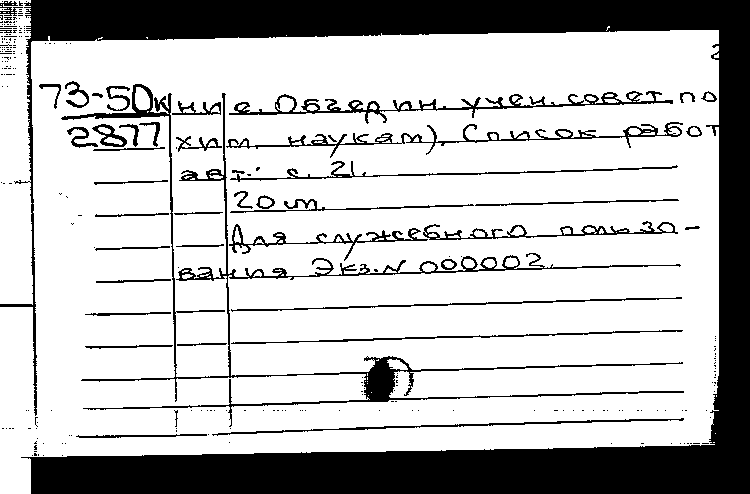 2
73-50к ние. Объедин. учен. совет по
2877 хим. наукам). Список работ
авт.: с. 21.
20 см.
Для служебного пользо-
вания. Экз. N 000002.